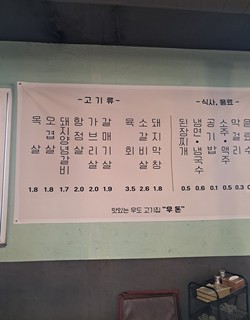 - 고 기 류 -
목살
오겹살
돼지양념갈비
항정살
가브리살
갈매기살
육회
소갈비살
돼지막창
1.8 1.8 1.7 2.0 2.0 1.9 3.5 2.6 1.8
- 식사, 음료 -
된장찌개
냉면·냉국수
공기밥
소주·맥주
막걸리
0.5 0.6 0.1 0.5 0.3
맛있는 무도 고기집 "우 돈"